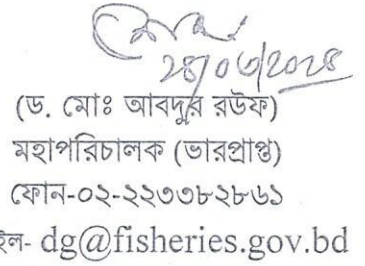 (ড. মোঃ আবদুর রউফ)
মহাপরিচালক (ভারপ্রাপ্ত)
ফোন-০২-২২৩৩৮২৮৬১
ইল- dg@fisheries.gov.bd